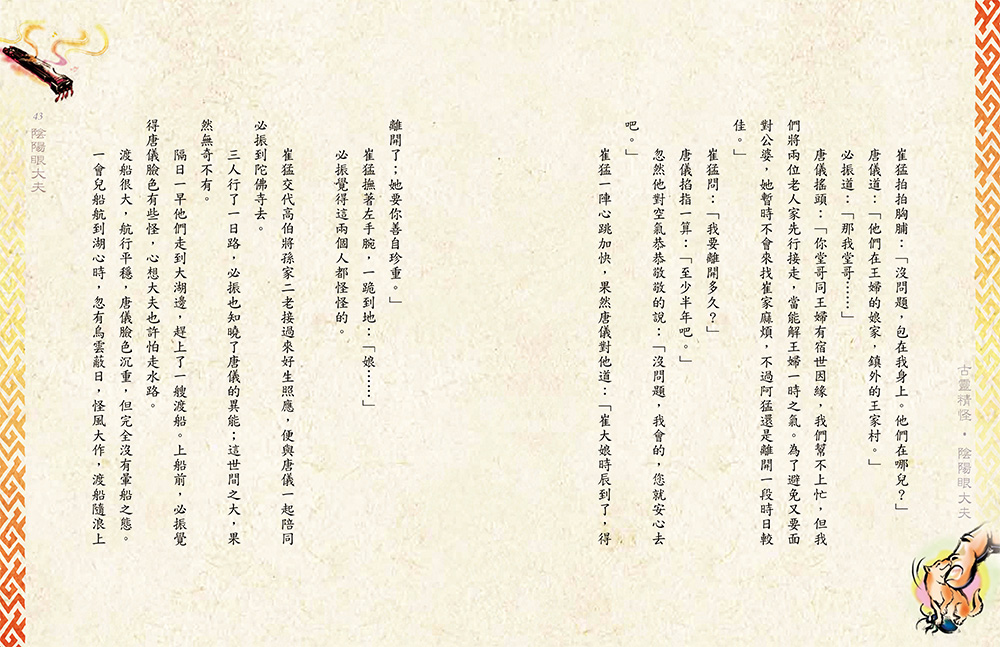 古靈精怪・陰陽眼大夫
崔猛拍拍胸脯：「沒問題，包在我身上。他們在哪兒？」
唐儀道：「他們在王婦的娘家，鎮外的王家村。」
必振道：「那我堂哥……」
唐儀搖頭：「你堂哥同王婦有宿世因緣，我們幫不上忙，但我
們將兩位老人家先行接走，當能解王婦一時之氣。為了避免又要面
對公婆，她暫時不會來找崔家麻煩，不過阿猛還是離開一段時日較
佳。」
崔猛問：「我要離開多久？」
唐儀掐指一算：「至少半年吧。」
忽然他對空氣恭恭敬敬的說：「沒問題，我會的，您就安心去
吧。」
崔猛一陣心跳加快，果然唐儀對他道：「崔大娘時辰到了，得
離開了；她要你善自珍重。」
崔猛撫著左手腕，一跪到地：「娘……」
必振覺得這兩個人都怪怪的。
崔猛交代高伯將孫家二老接過來好生照應，便與唐儀一起陪同
必振到陀佛寺去。
三人行了一日路，必振也知曉了唐儀的異能；這世間之大，果
然無奇不有。
隔日一早他們走到大湖邊，趕上了一艘渡船。上船前，必振覺
得唐儀臉色有些怪，心想大夫也許怕走水路。
渡船很大，航行平穩，唐儀臉色沉重，但完全沒有暈船之態。
一會兒船航到湖心時，忽有烏雲蔽日，怪風大作，渡船隨浪上
43 陰陽眼大夫